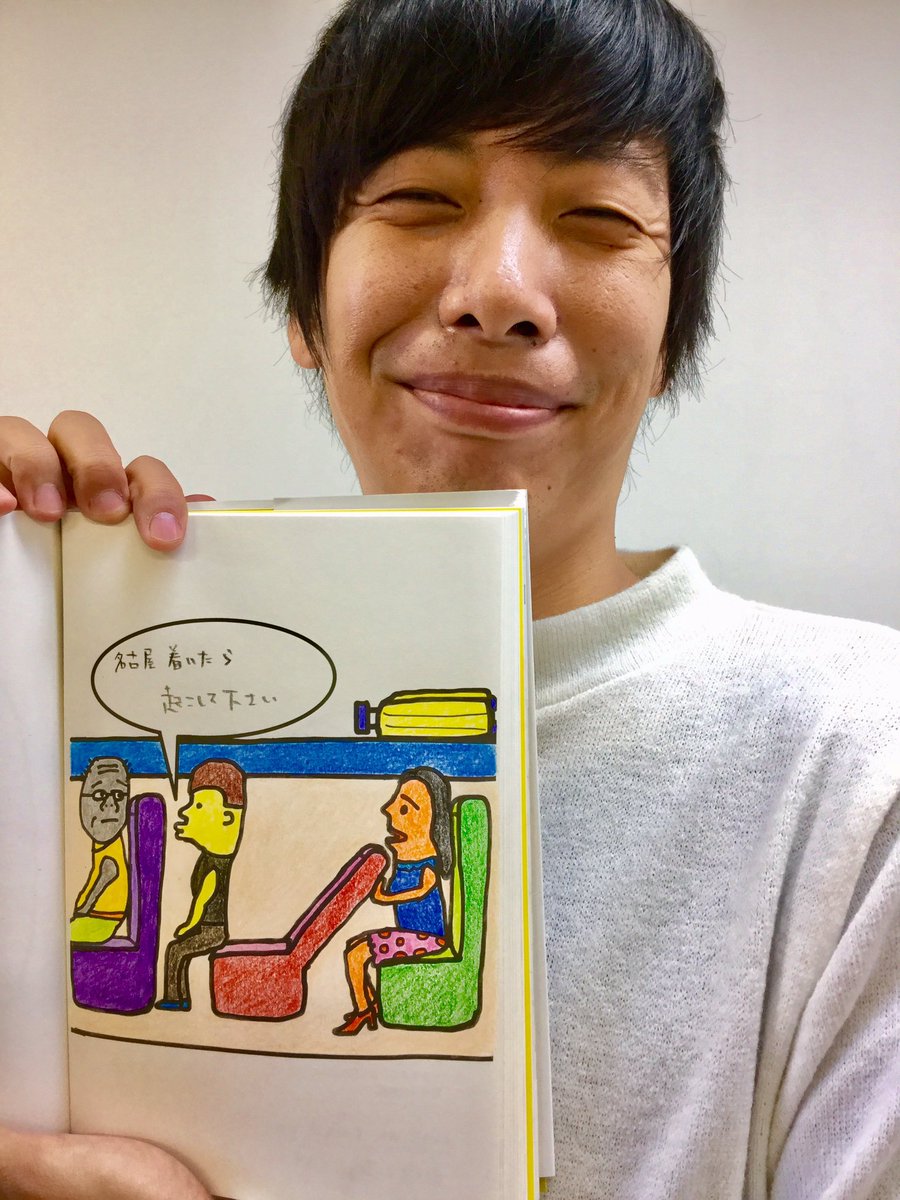 名古屋着いたら
起こして下さい